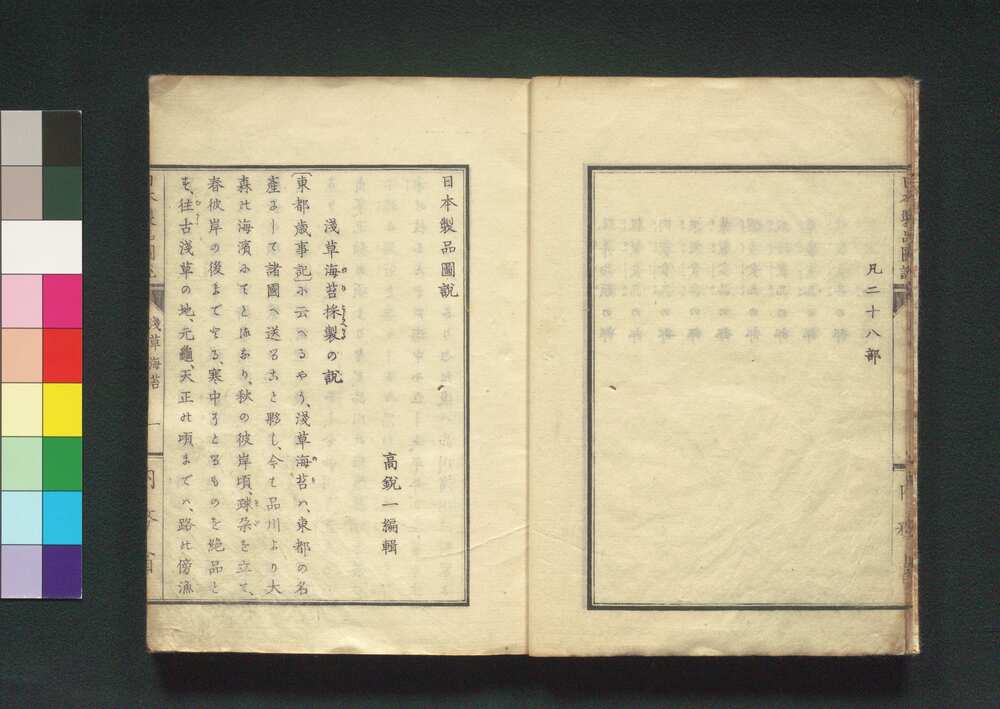 凡二十八部
日本製品圖說
高銳一編輯
淺草海苔採製の說
東都歳事記に云へるやう、淺草海苔ハ、東都の名
產にして諸國へ送ること夥し、今も品川より大
森の海濱にてとれり、秋の彼岸頃、麁朶を立て、
春彼岸の後までとる、寒中にとるものを絶品と
す、往古淺草の地、元龜、天正の頃までハ、路の傍漁
淺草海苔
一
內務省